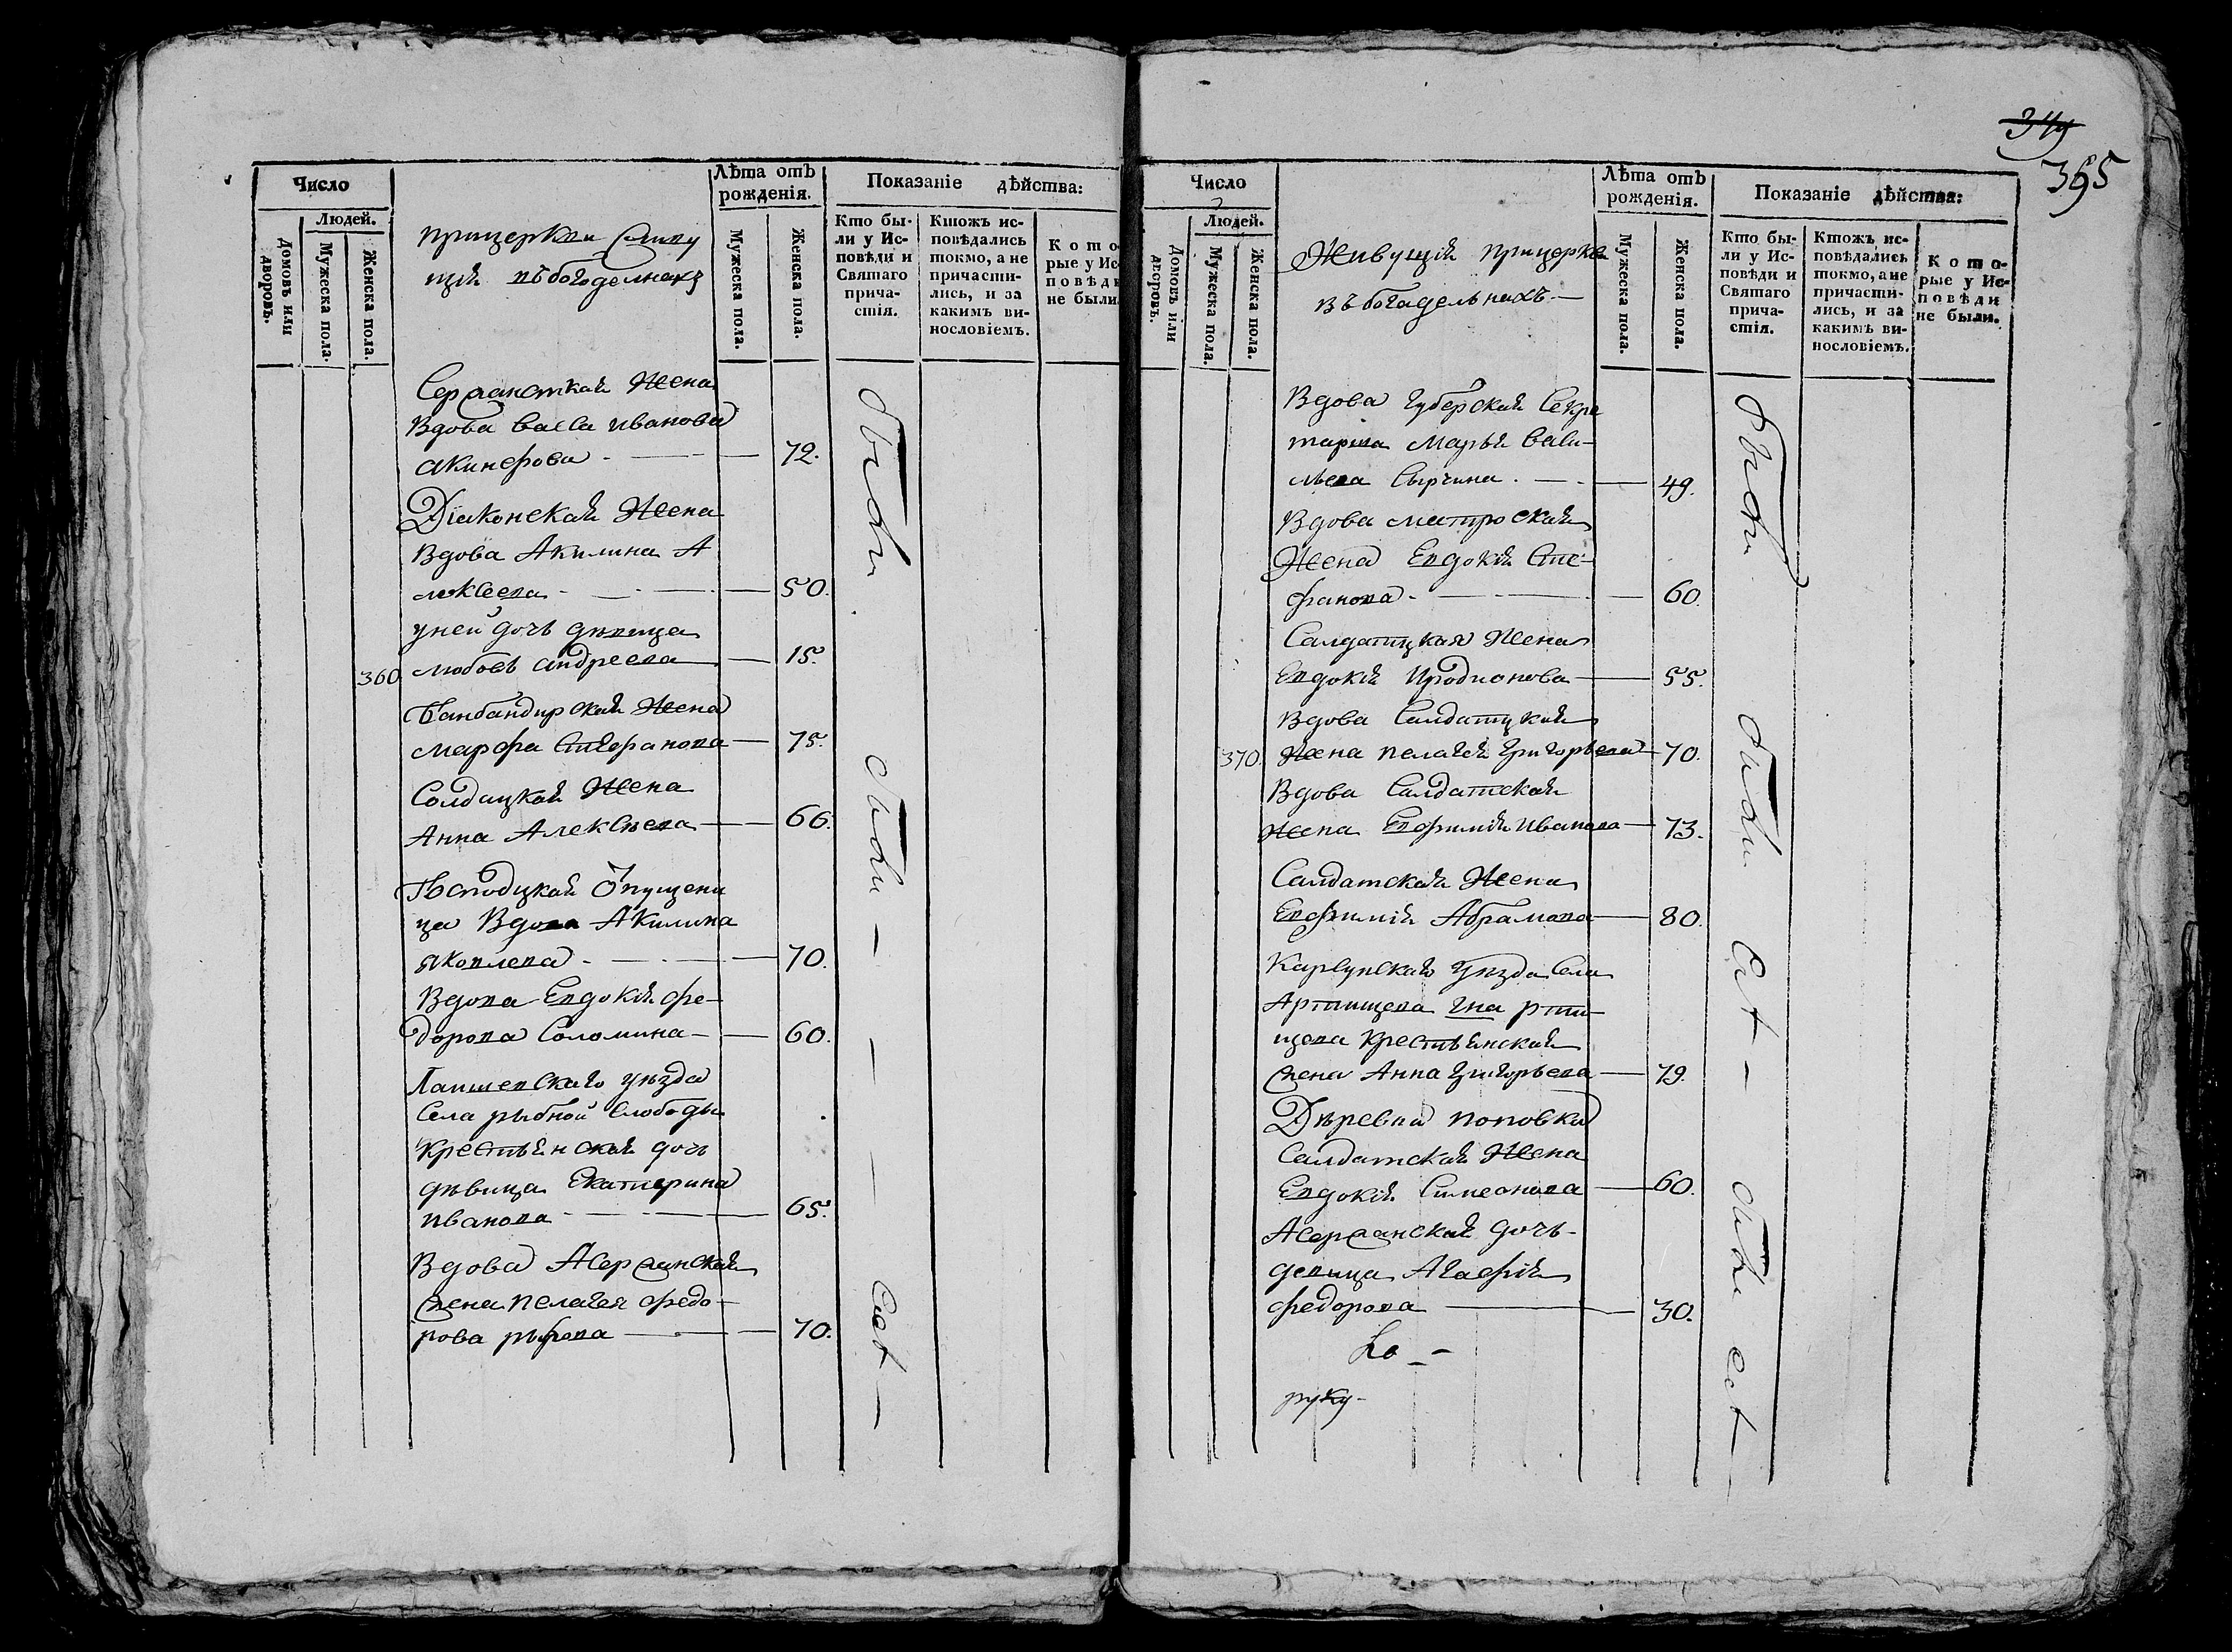 Число
Людей.
Домовъ или дворовъ.
Мужеска пола.
Женска пола.
прицеркви Живу
щій въбогодельнахъ
Лѣта отъ рожденія.
Мужеска пола.
Женска пола.
Показаніе дѣйства:
Кто бы-
ли у Ис-
повѣди и
Святаго
прича-
стія.
Ктожъ ис-
повѣдались
токмо, а не
причасти-
лись, и за
какимъ ви-
нословіемъ.
Кото
рые у Ис
повѣд
не были
Сержанткая Жена
Вдова Васса иванова
акинфова 72.
Діаконская Жена
Вдова Акилина А
лексеева 50.
уней дочь дѣвица
360 любовь андреева 15.
Банбандирская Жена
марфа Стефанова 75.
Солдацкая Жена
Анна Алексѣева 66.
Господцкая Опущени
ца Вдова Акилина
яковлева 70.
Вдова Евдокія фе-
дорова Соломина 60.
Лаишевскаго уѣзда
Села рыбной Слободы
Крестьянская дочь
дѣвица Екатерина
иванова 65.
Вдова Асержанская
жена пелагея федо-
рова 70.
были
349
365
Число
Людей.
Домовъ или дворовъ.
Мужеска пола.
Женска пола.
Живущія прицеркве
въ богадельнахъ
Лѣта отъ рожденія.
Мужеска пола.
Женска пола.
Показаніе дѣйства:
Кто бы-
ли у Ис-
повѣди и
Святаго
прича-
стія.
Ктожъ ис-
повѣдались
токмо, а не
причасти-
лись, и за
какимъ ви-
нословіемъ.
Кото-
рые у Ис-
повѣди
не были.
Вдова Губерская Секре
тарша Марья Васи-
льева Сырчина 49.
Вдова матроская
Жена Евдокія Сте-
фанова 60.
Салдатцкая Жена
Евдокія Иродионова 55.
Вдова Салдатцкая
370. Жена пелагея Григорьева 70.
Вдова Салдатская
Жена Евфимія Иванова 73.
Салдатская Жена
Евфимія Абрамова 80.
Карсунскаго уѣзда Села
Артищева Гна рти-
щева Крестьянская
жена Анна Григорьева 79.
Дѣревна поповка
Салдатская Жена
Евдокія Симеонова 60.
Асержанская дочь
девица Агафія
федорова 30.
руку
были